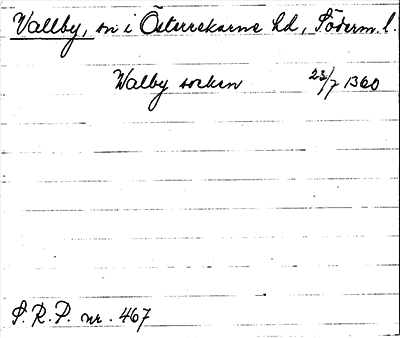 Vallby, sn i Österrekarne hd, Söderm. l.
Walby sockin 23/7 1360
S. R. P. nr. 467